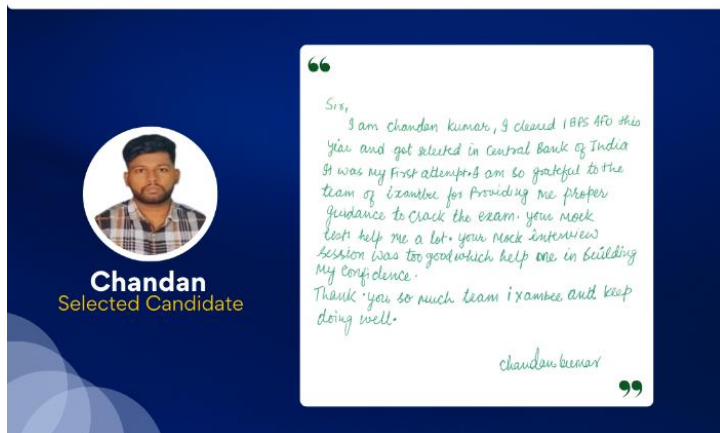 Sir,
I am Chandan Kumar, I cleared IBPS AFO this
year and got selected in Central Bank of India
It was my First attempt. I am so grateful to the
team of ixambee for Providing me proper
guidance to Crack the exam. your Mock
tests help me a lot. your Mock interview
session was too good which help me in building
My confidence.
Thank you so much team ixambee and keep
doing well.
chandan kumar
Chandan
Selected Candidate